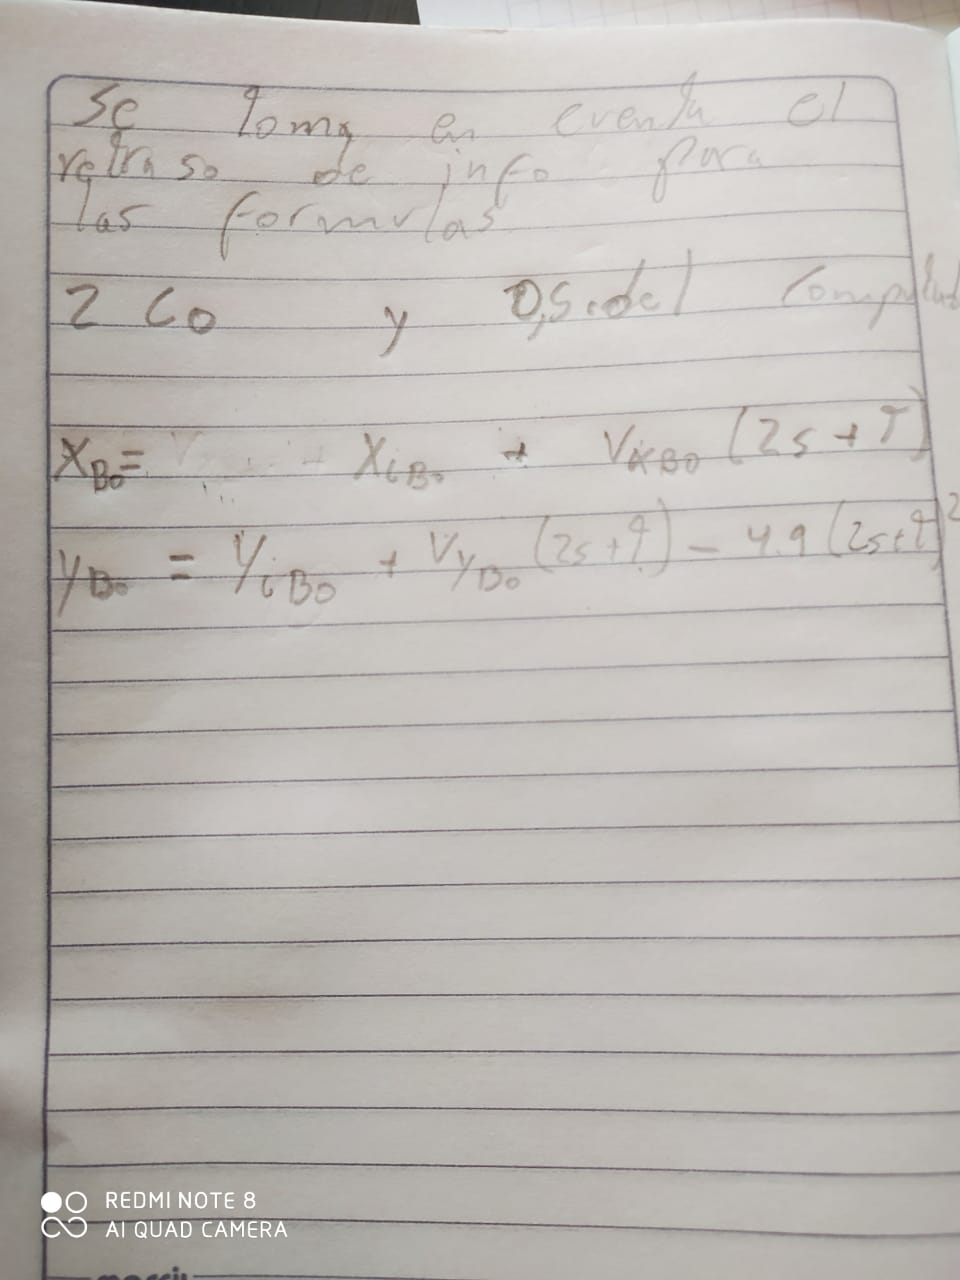 Se toma en cuenta el
retraso de info para
las formulas
2 Co y 0,5 del
X_Bo = X_iBo + V_ixBo (2s + T)
Y_Bo = Y_iBo + V_yBo (2s + t) - 4.9 (2s + t)^2
REDMI NOTE 8
AI QUAD CAMERA